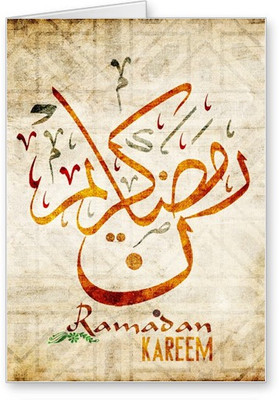 رمضان كريم
Ramadan
KAREEM